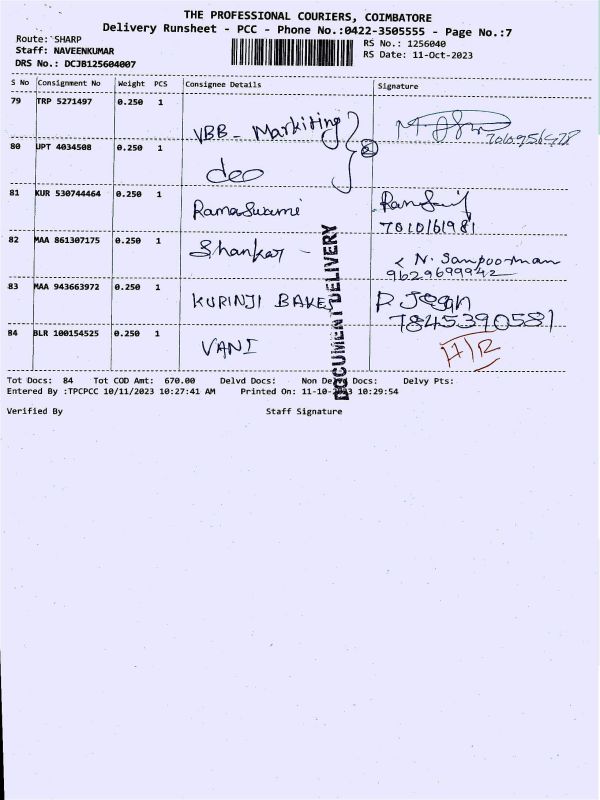 THE PROFESSIONAL COURIERS, COIMBATORE
Delivery Runsheet - PCC - Phone No.:0422-3505555 - Page No.:7
Route: SHARP
Staff: NAVEENKUMAR
DRS No.: DCJB125604007
RS No.: 1256040
RS Date: 11-Oct-2023
S No Consignment No Weight PCS Consignee Details Signature
79 TRP 5271497 0.250 1 VBB - Markiting
80 UPT 4034508 0.250 1 deo
81 KUR 530744464 0.250 1 RamaSwami
7010161981
82 MAA 861307175 0.250 1 Shankar - N. Sanpoornam
9629699942
83 MAA 943663972 0.250 1 KURINJI BAKES P Jegan
7845390581
84 BLR 100154525 0.250 1 VANI
DOCUMENT DELIVERY
Tot Docs: 84 Tot COD Amt: 670.00 Delvd Docs: Non Delvd Docs: Delvy Pts:
Entered By :TPCPCC 10/11/2023 10:27:41 AM Printed On: 11-10-2023 10:29:54
Verified By Staff Signature